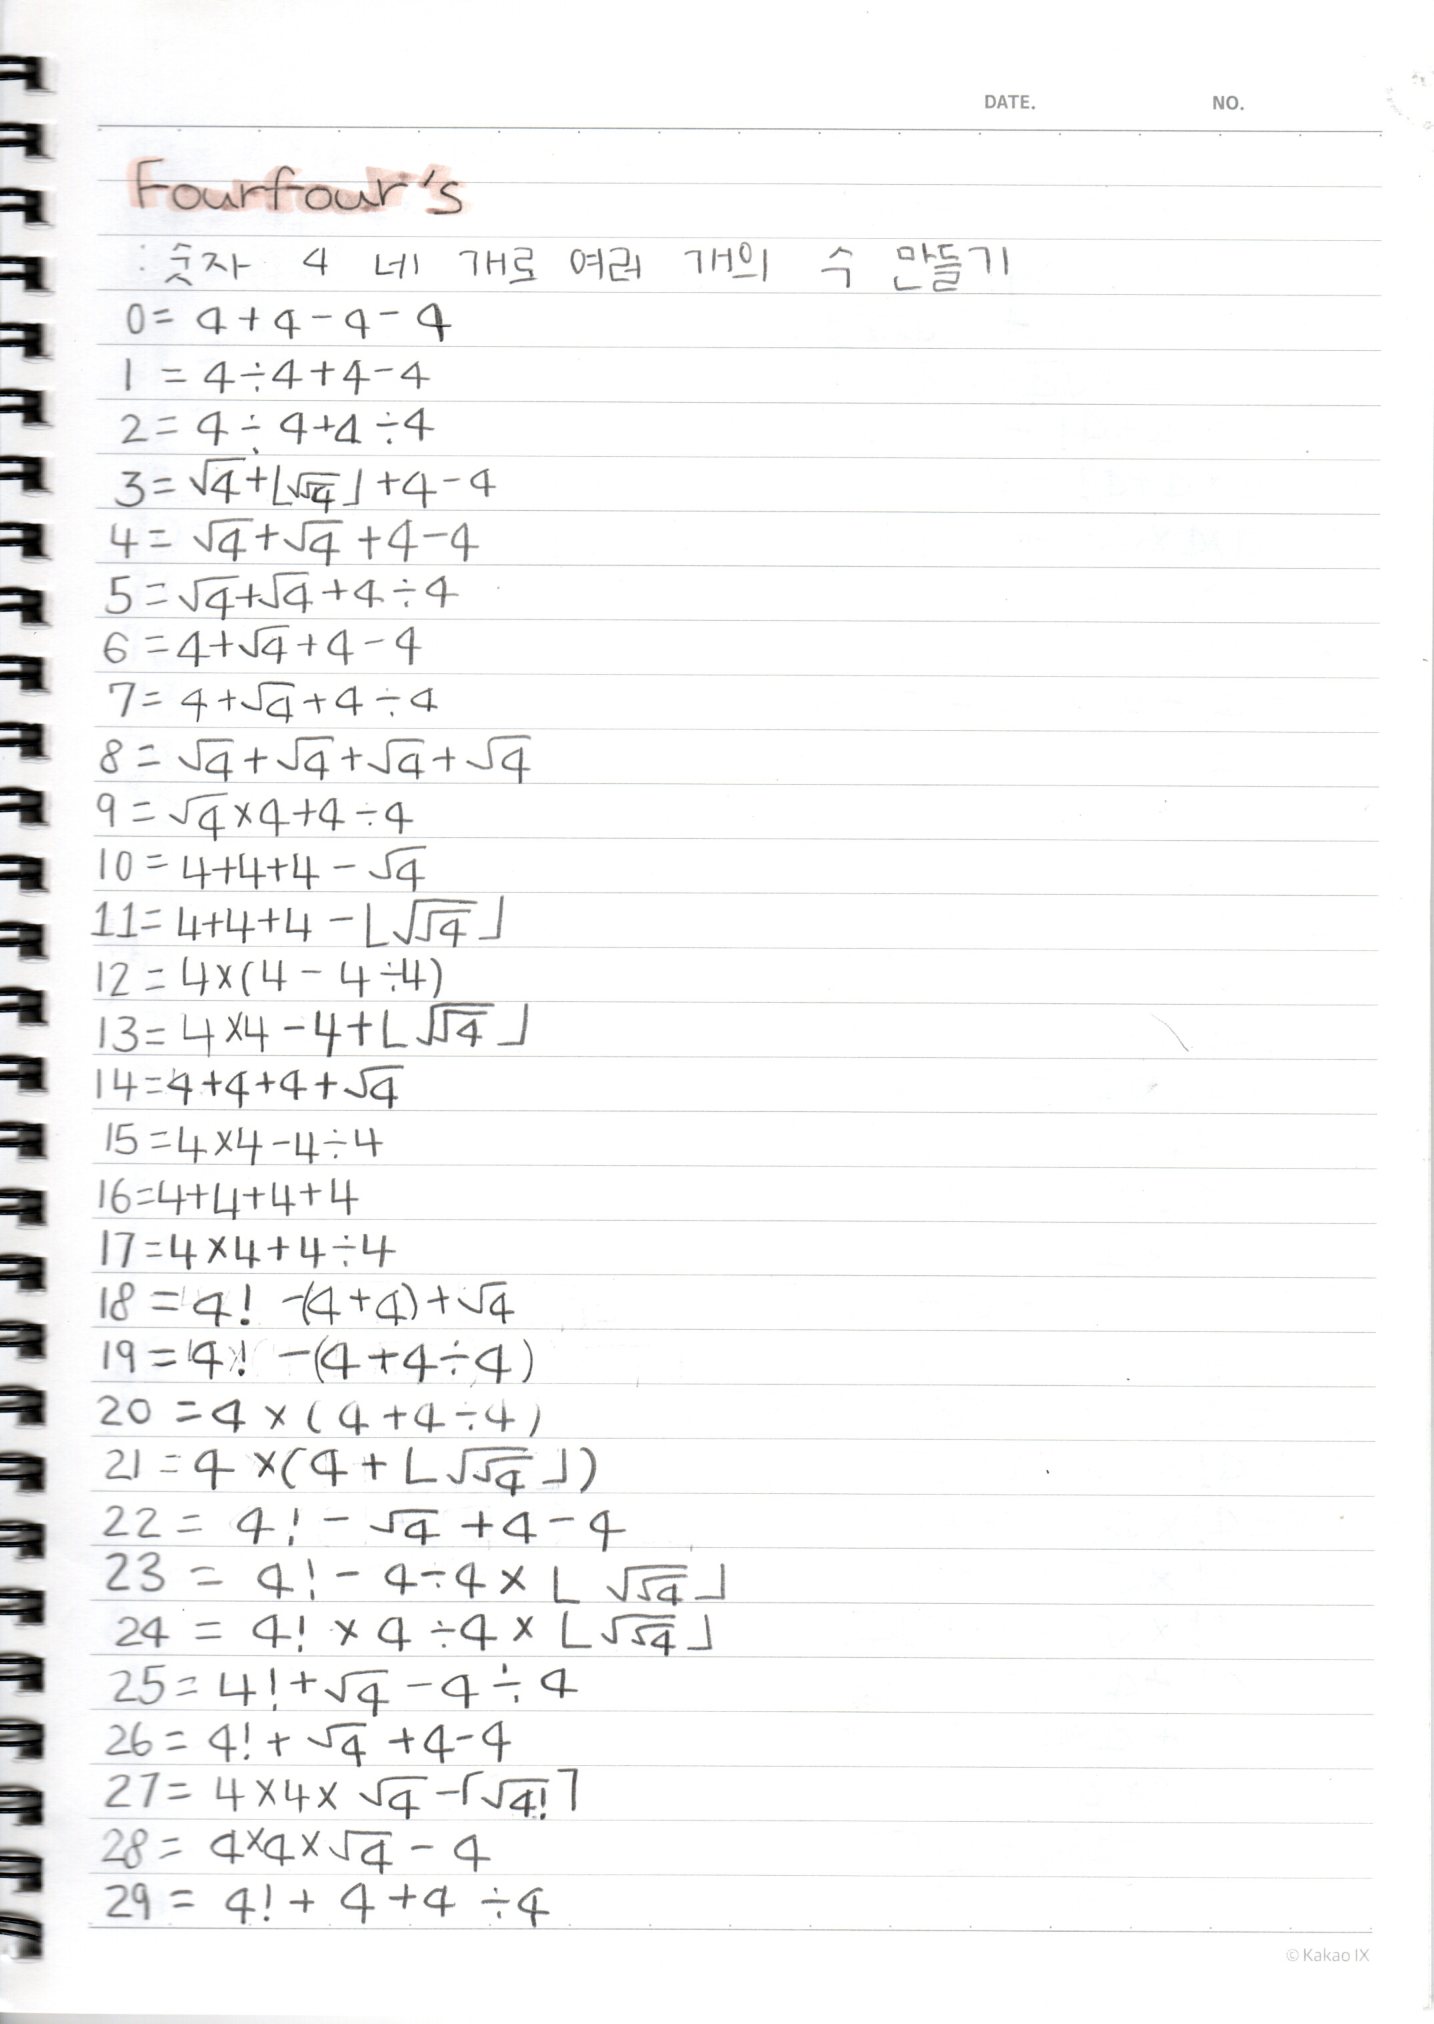 DATE. NO.
Fourfour's
: 숫자 4 네 개로 여러 개의 수 만들기
0= 4+4-4-4
1 = 4÷4+4-4
2= 4÷4+4÷4
3= √4+⌊√√4⌋+4-4
4= √4+√4+4-4
5=√4+√4+4÷4
6=4+√4+4-4
7= 4+√4+4÷4
8= √4+√4+√4+√4
9= √4×4+4÷4
10= 4+4+4-√4
11= 4+4+4-⌊√√4⌋
12= 4×(4-4÷4)
13= 4×4-4+⌊√√4⌋
14=4+4+4+√4
15=4×4-4÷4
16=4+4+4+4
17=4×4+4÷4
18=4! -(4+4)+√4
19=4! -(4+4÷4)
20=4×(4+4÷4)
21=4×(4+⌊√√4⌋)
22= 4!-√4+4-4
23= 4!-4÷4×⌊√√4⌋
24= 4!×4÷4×⌊√√4⌋
25= 4!+√4-4÷4
26= 4!+√4+4-4
27= 4×4×√4-⌈√4!⌉
28= 4×4×√4-4
29= 4!+4+4÷4
© Kakao IX